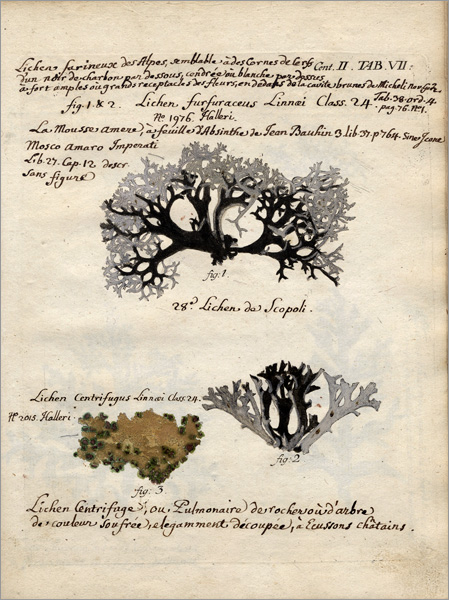 Lichen farineux des Alpes, semblable à des Cornes de Cerf, Cent. II. TAB. VII:
d'un noir de charbon par dessous, cendrée ou blanche par dessus
à fort amples ou grands receptacles des fleurs, en dedans de la cavité brunes de Micheli
Tab. 38. ord. 4.
fig. 1 & 2. Lichen furfuraceus Linnæi Class. 24. pag. 76. N.1.
No 1976. Halleri.
La Mousse amere, à feuille d'Absinthe de Jean Bauhin 3. lib. 37. p. 764. Sine Icone
Mosco amaro Imperati
Lib. 27. Cap. 12 descr.
sans figure
fig: 1.
28.e Lichen de Scopoli.
Lichen Centrifugus Linnæi Class. 24.
No 2015. Halleri.
fig: 2
fig: 3
Lichen Centrifuge, ou Pulmonaire de rocher où d'arbre
de couleur soufrée, elegamment découpée, à Ecussons châtains.